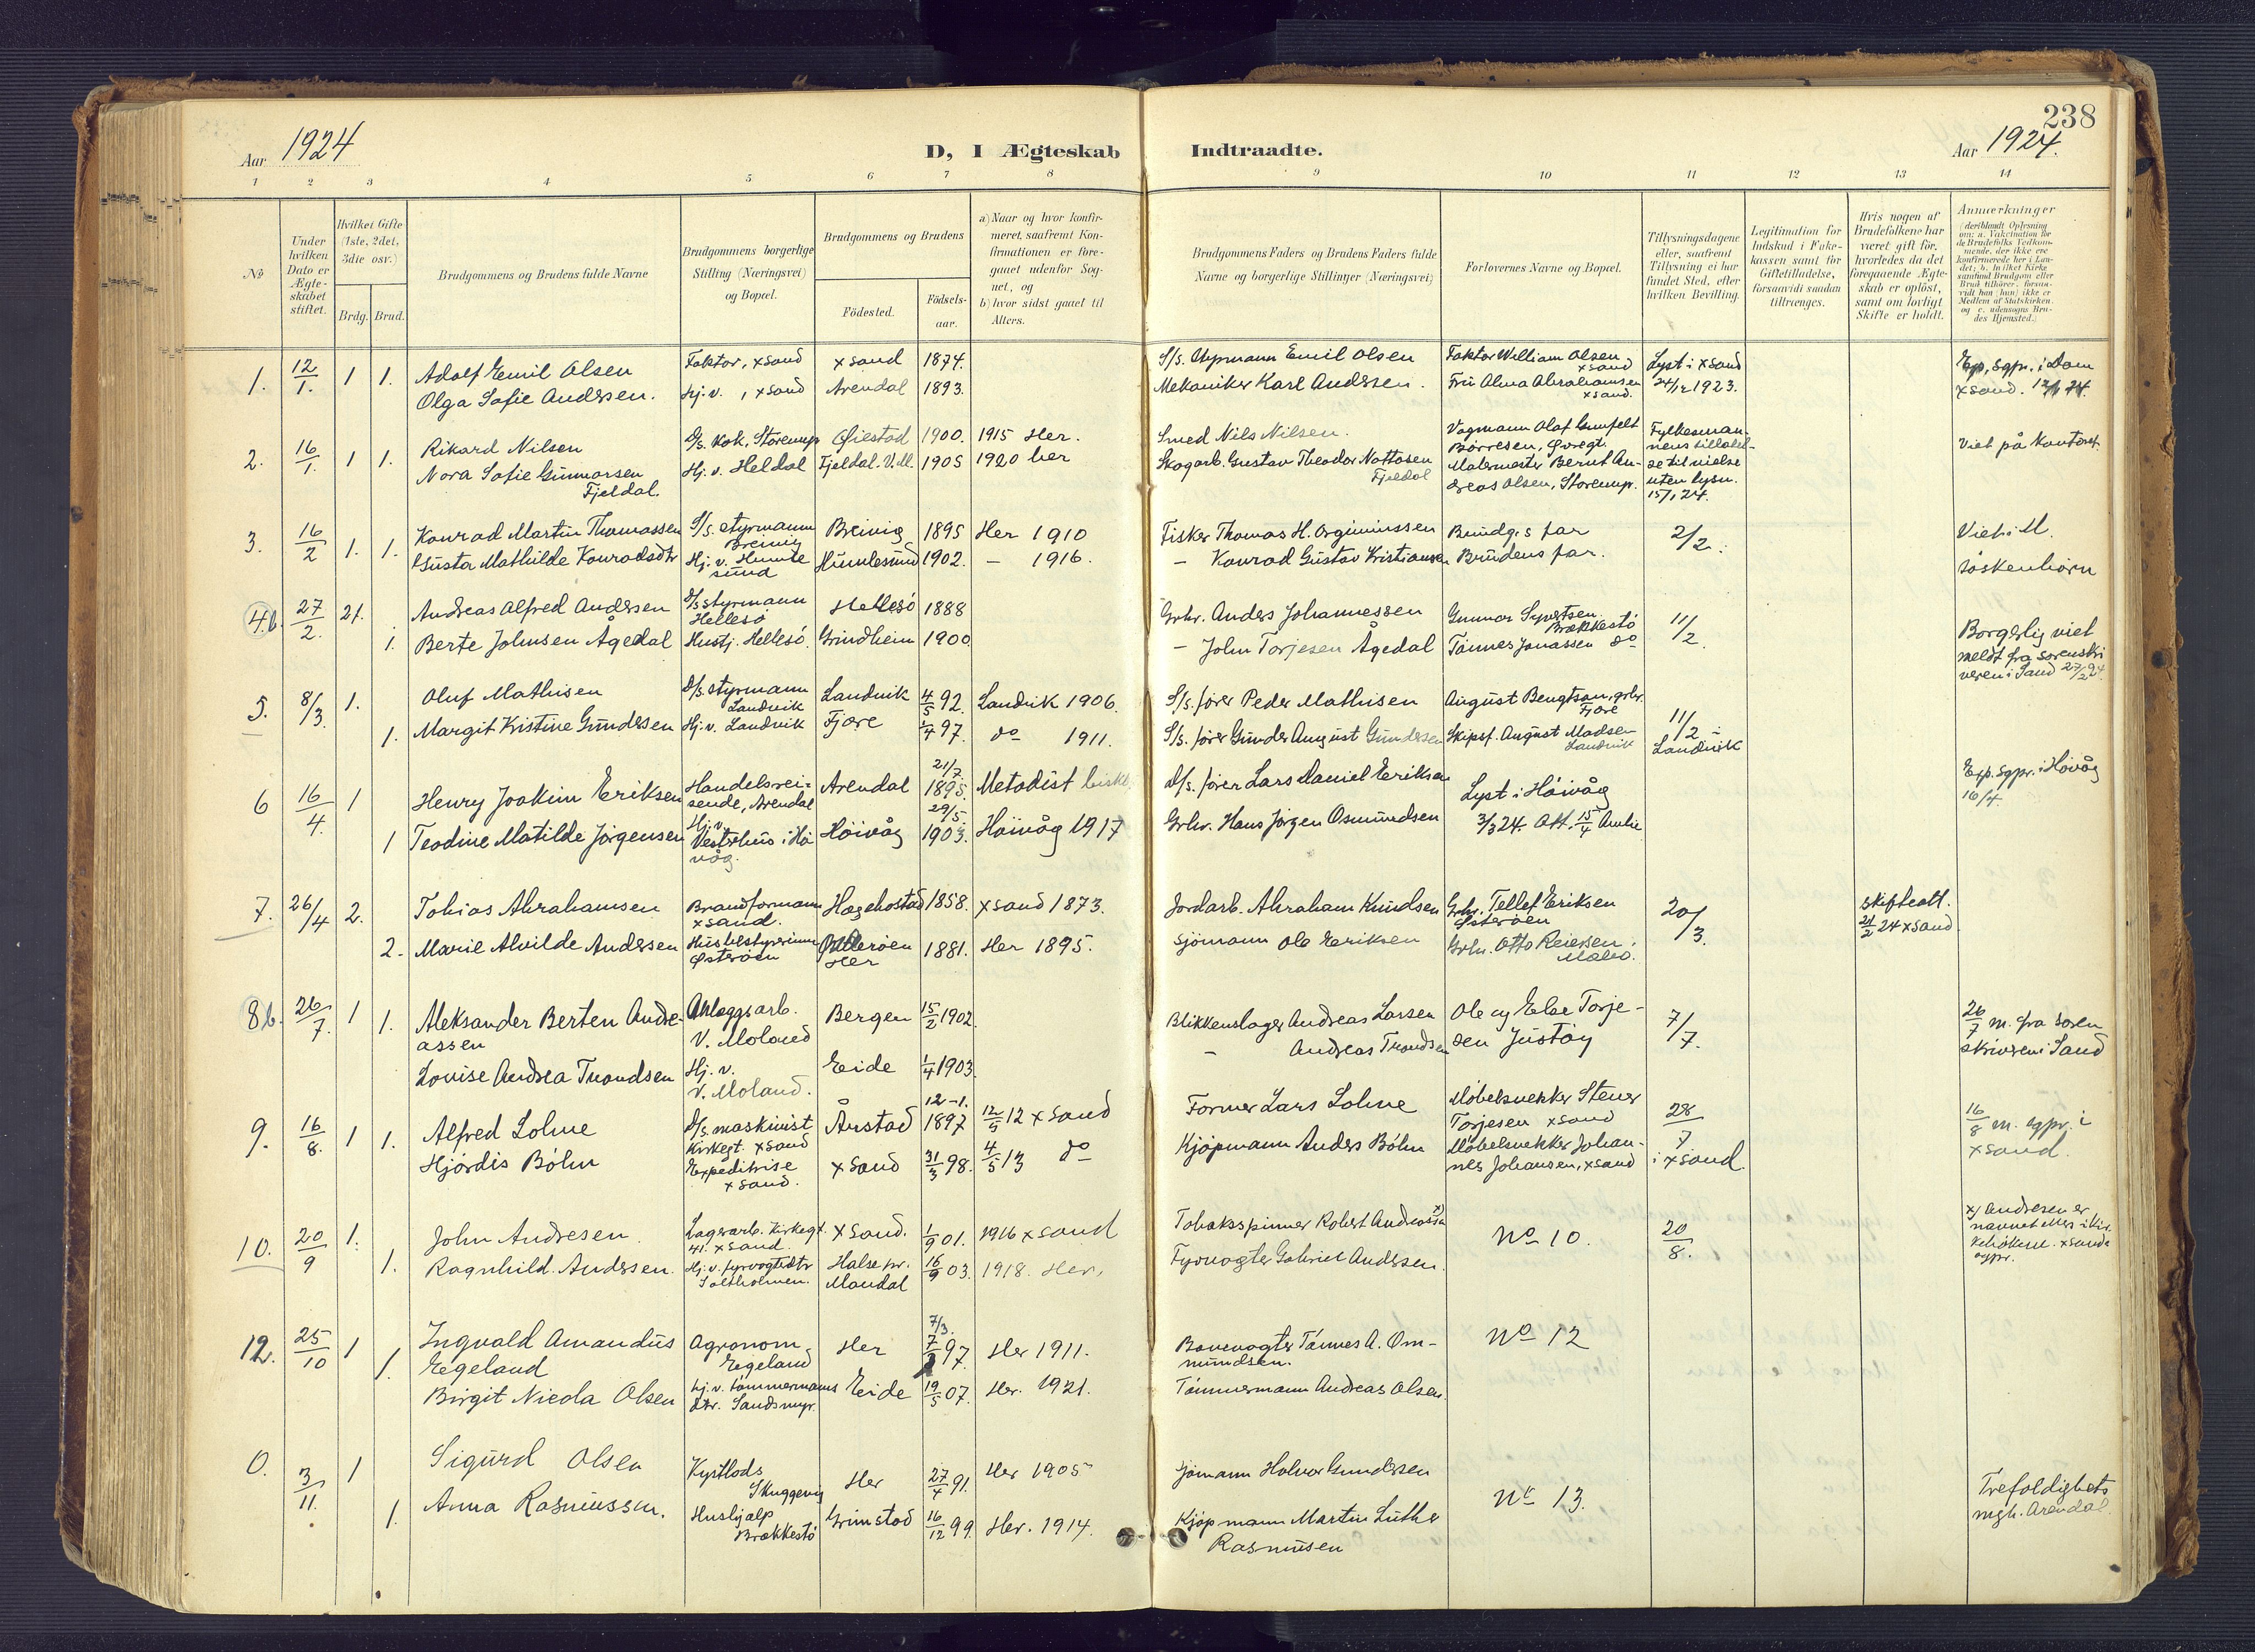 238
Aar 1924
D, I Ægteskab Indtraadte.
Aar 1924.
1 2 3 4 5 6 7 8 9 10 11 12 13 14
No
Under hvilken Dato er Ægteskabet stiftet.
Hvilket Gifte (1ste, 2det, 3die osv.)
Brdg. Brud.
Brudgommens og Brudens fulde Navne
Brudgommens borgerlige Stilling (Næringsvei) og Bopæl.
Brudgommens og Brudens
Födested.
Födsels-aar.
a) Naar og hvor konfirmeret, saafremt Konfirmationen er foregaaet udenfor Sognet, og
b) hvor sidst gaaet til Alters.
Brudgommens Faders og Brudens Faders fulde Navne og borgerlige Stillinger (Næringsvei)
Forlovernes Navne og Bopæl.
Tillysningsdagene eller, saafremt Tillysning ei har fundet Sted, efter hvilken Bevilling.
Legitimation for Indskud i Enkekassen samt for Giftetilladelse, forsaavidt saadan tiltrænges.
Hvis nogen af Brudefolkene har været gift för, hvorledes da det foregaaende Ægteskab er oplöst, samt om lovligt Skifte er holdt.
Anmærkninger
1. 12/1. 1 1. Adolf Emil Olsen Faktor, xsand xsand 1874. S/s. Emil Olsen Faktor William Olsen xsand Lyst i xsand Exp, sgpr. i Dom
Olga Sofie Andersen. Hj.v., xsand Arendal 1893. Mekaniker Karl Andersen. Fru Alma Abrahamsen xsand. 24/12 1923. xsand.
2. 16/1. 1 1. Rikard Nilsen D/s. Kok, Øiestad 1900. 1915 Her. Smed Nils Nilsen. Vognmann Olaf Børresen, Fylkesmannens tilladelse til vielse uten lysn. 15/1 24. Viet på Kontoret
Nora Sofie Gunnarsen Fjeldal. Hj.v. Heldal Fjeldal. V.M. 1905 1920 her Skogarb. Gustav Theodor Nattosen Fjeldal Malermester Bernt Andreas Olsen,
3. 16/2 1. 1. Konrad Martin Thomassen S/s. styrmann Breivig Breivig 1895 Her 1910 Fisker Thomas H. Brudg.s far 2/2. Viet i M.
Gusta Mathilde Konradsdtr Hj. v. Humlesund Humlesund 1902. – 1916. – Konrad Gustav Kristiansen Brudens far.
4b. 27/2. 2. Andreas Alfred Andersen D/s styrmann Hellesö Hellesö 1888 Grbr. Anders Johannessen Gunnar Syvertsen Brækkestö 11/2. Borgerlig viet
1. Berte Johnsen Ågedal Hustj. Hellesö. Grindheim 1900. – John Torjesen Ågedal Tönnes Jonassen do meldt fra sorenskriveren i Sand 27/2 24.
5. 8/3. 1. Oluf Mathisen D/s. styrmann Landvik Landvik 4/5 92. Landvik 1906. S/s. förer Peder Mathisen August Bengtson, grbr. Fjære 11/2 i Landvik
1. Margit Kristine Gundersen Hj.v. Landvik Fjære 1/4 97. do 1911. S/s. förer Gunder August Gundersen Skipsf. August Madsen Landvik
6 16/4. 1 Henry Joakim Eriksen Handelsreisende, Arendal Arendal 21/7. 1895. Metodist D/s. förer Lars Daniel Eriksen Lyst i Höivåg Exp. sgpr. i Höivåg 16/4.
1 Teodine Matilde Jörgensen Hj.v. Vesterhus i Höivåg. Höivåg 29/5. 1903. Höivåg 1917 Grbr. Hans Jörgen Osmundsen 3/3 24. Att. 15/4
7. 26/4 2. Tobias Abrahamsen Brandformann xsand. Hægebostad 1858. xsand 1873. Jordarb. Abraham Knudsen Grbr. Tellef Eriksen Østeröen 20/3. Skifteatt. 21/2 24 xsand
2. Marie Alvilde Andersen Husbestyrerinne Østeröen Her 1881. Her 1895. Sjömann Ole Eriksen Grbr. Otto Reiersen
8b. 26/7. 1 1. Aleksander Berten Andreassen Anlæggsarb. V. Moland Bergen 15/2 1902. Blikkenslager Andreas Larsen Ole og Else Torjesen Justöy 7/7. 26/7 m. fra sorenskriveren i Sand
Lovise Andrea Trondsen Hj. v. V. Moland. Eide 1/4 1903. – Andreas Trondsen
9. 16/8. 1 1. Alfred Lohne D/s. maskinist Kirkegt. xsand Ånstad 12-1. 1897 12/5 12 xsand Former Lars Lohne Möbelsnekker Stener Torjesen xsand 28/7 i xsand. 16/8 m. sgpr. i xsand.
Hjördis Böhn Expeditrise xsand. xsand 31/3 98. 4/5 13 do Kjöpmann Anders Böhn Möbelsnekker Johannes Johansen, xsand
10. 20/9 1. John Andresen. Lagerarb. Kirkegt. 41. xsand. xsand. 1/9 01. 1916 xsand Tobaksspinner Robert Andreassen x) No 10. 20/8. x) Andresen er
1. Ragnhild Andersen. Hj.v. fyrvogtedtr Saltholmen. Halse pr. Mandal 16/9 03. 1918. Her. Fyrvogter Gabriel Andersen.
12. 25/10 1 Ingvald Amandus Egeland Agronom, Egeland Her 7/3. 97. Her 1911. Banevogter Tönnes A. Ommundsen. No 12
1. Birgit Nicola Olsen Hj.v. tömmermanns dtr. Sandsmyr. Eide 19/5 07. Her. 1921. Tömmermann Andreas Olsen.
0. 3/11. 1 Sigurd Olsen Kystlods Skuggevig Her 27/4 91. Her 1905 Sjömann Halvor Gundersen No 13. Trefoldighets
1. Anna Rasmussen. Hushjælp Brækkestö Grimstad 16/12 99. Her. 1914. Kjöpmann Martin Luther Rasmusen mgh. Arendal.